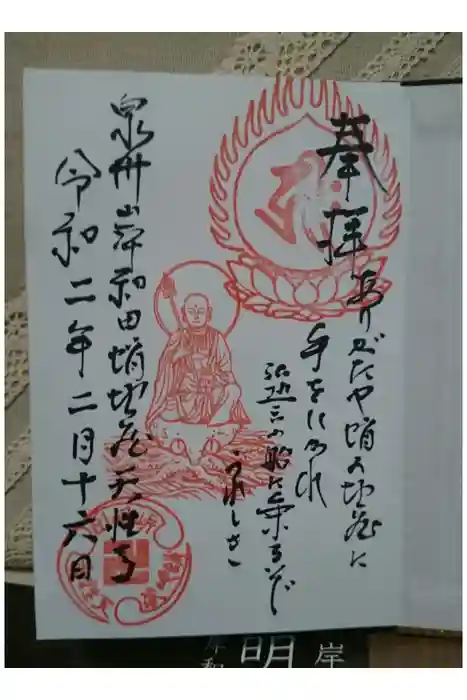 奉拝
ありがたや蛸の地蔵に
手をひかれ
弘逝三の船に乗るぞ
うれしき
泉州岸和田蛸地蔵天性寺
令和二年二月十六日
明
岸
岸和